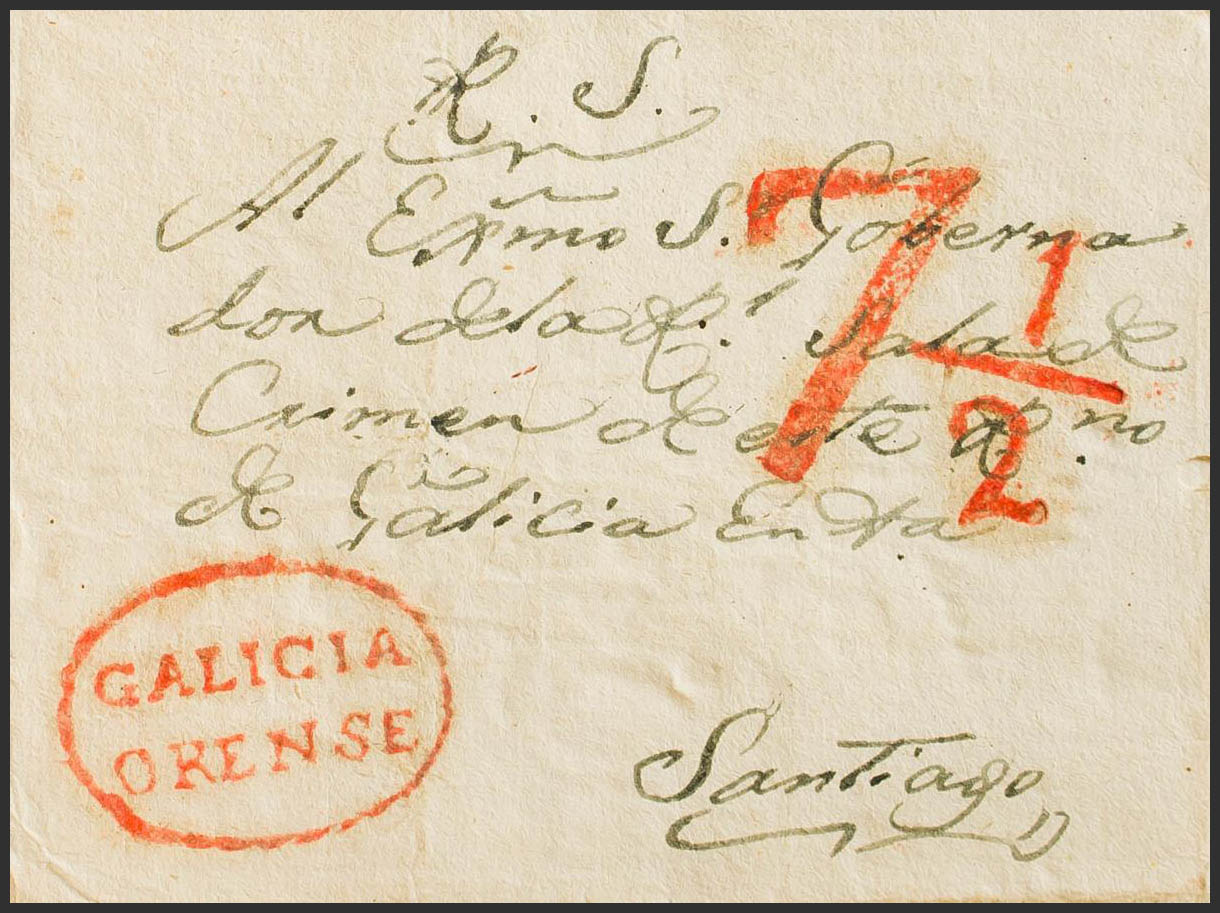 R. S.
Al Exmo S.r Goberna
dor de la R.l Sala de
Crimen de este R.no
de Galicia En
7 1/2
GALICIA
ORENSE
Santiago